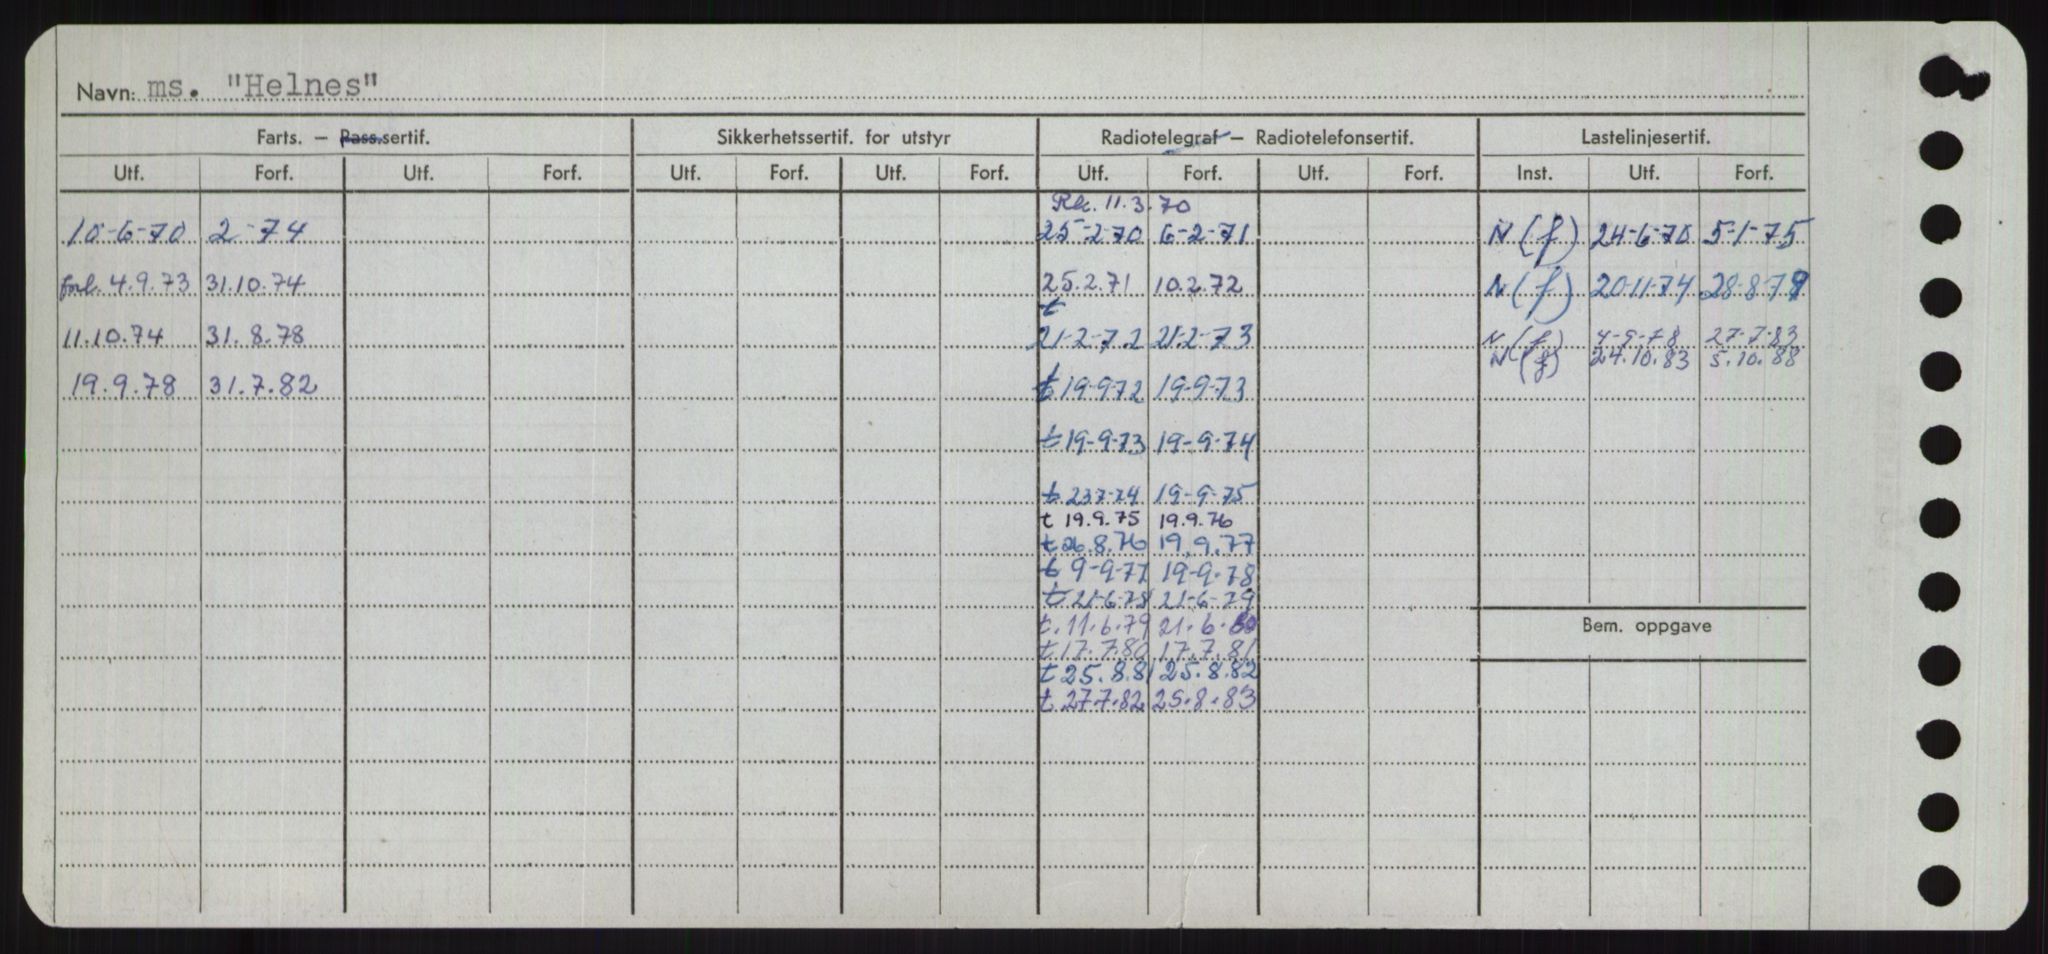 Navn: ms. "Helnes"
Farts. — Pass.sertif. Sikkerhetssertif. for utstyr Radiotelegraf — Radiotelefonsertif. Lastelinjesertif.
Utf. Forf. Utf. Forf. Utf. Forf. Utf. Forf. Utf. Forf. Utf. Forf. Inst. Utf. Forf.
11.3.70
10-6-70 2-74 25-2-70 6-2-71 N (f) 24-6-70 5-1-75
forl. 4.9.73 31.10.74 25.2.71 10.2.72 N (f) 20-11-74 28-8-78
t
11.10.74 31.8.78 21-2-72 21-2-73 N (f) 4-9-78 27-7-83
N (f) 24.10.83 5.10.88
19.9.78 31.7.82 t 19-9-72 19-9-73
t 19-9-73 19-9-74
t 23-7-74 19-9-75
t 19.9.75 19.9.76
t 26.8.76 19.9.77
t 9-9-77 19-9-78
t 21-6-78 21-6-79
t. 11.6.79 21.6.80
Bem. oppgave
t 17.7.80 17.7.81
t 25.8.81 25.8.82
t 27.7.82 25.8.83